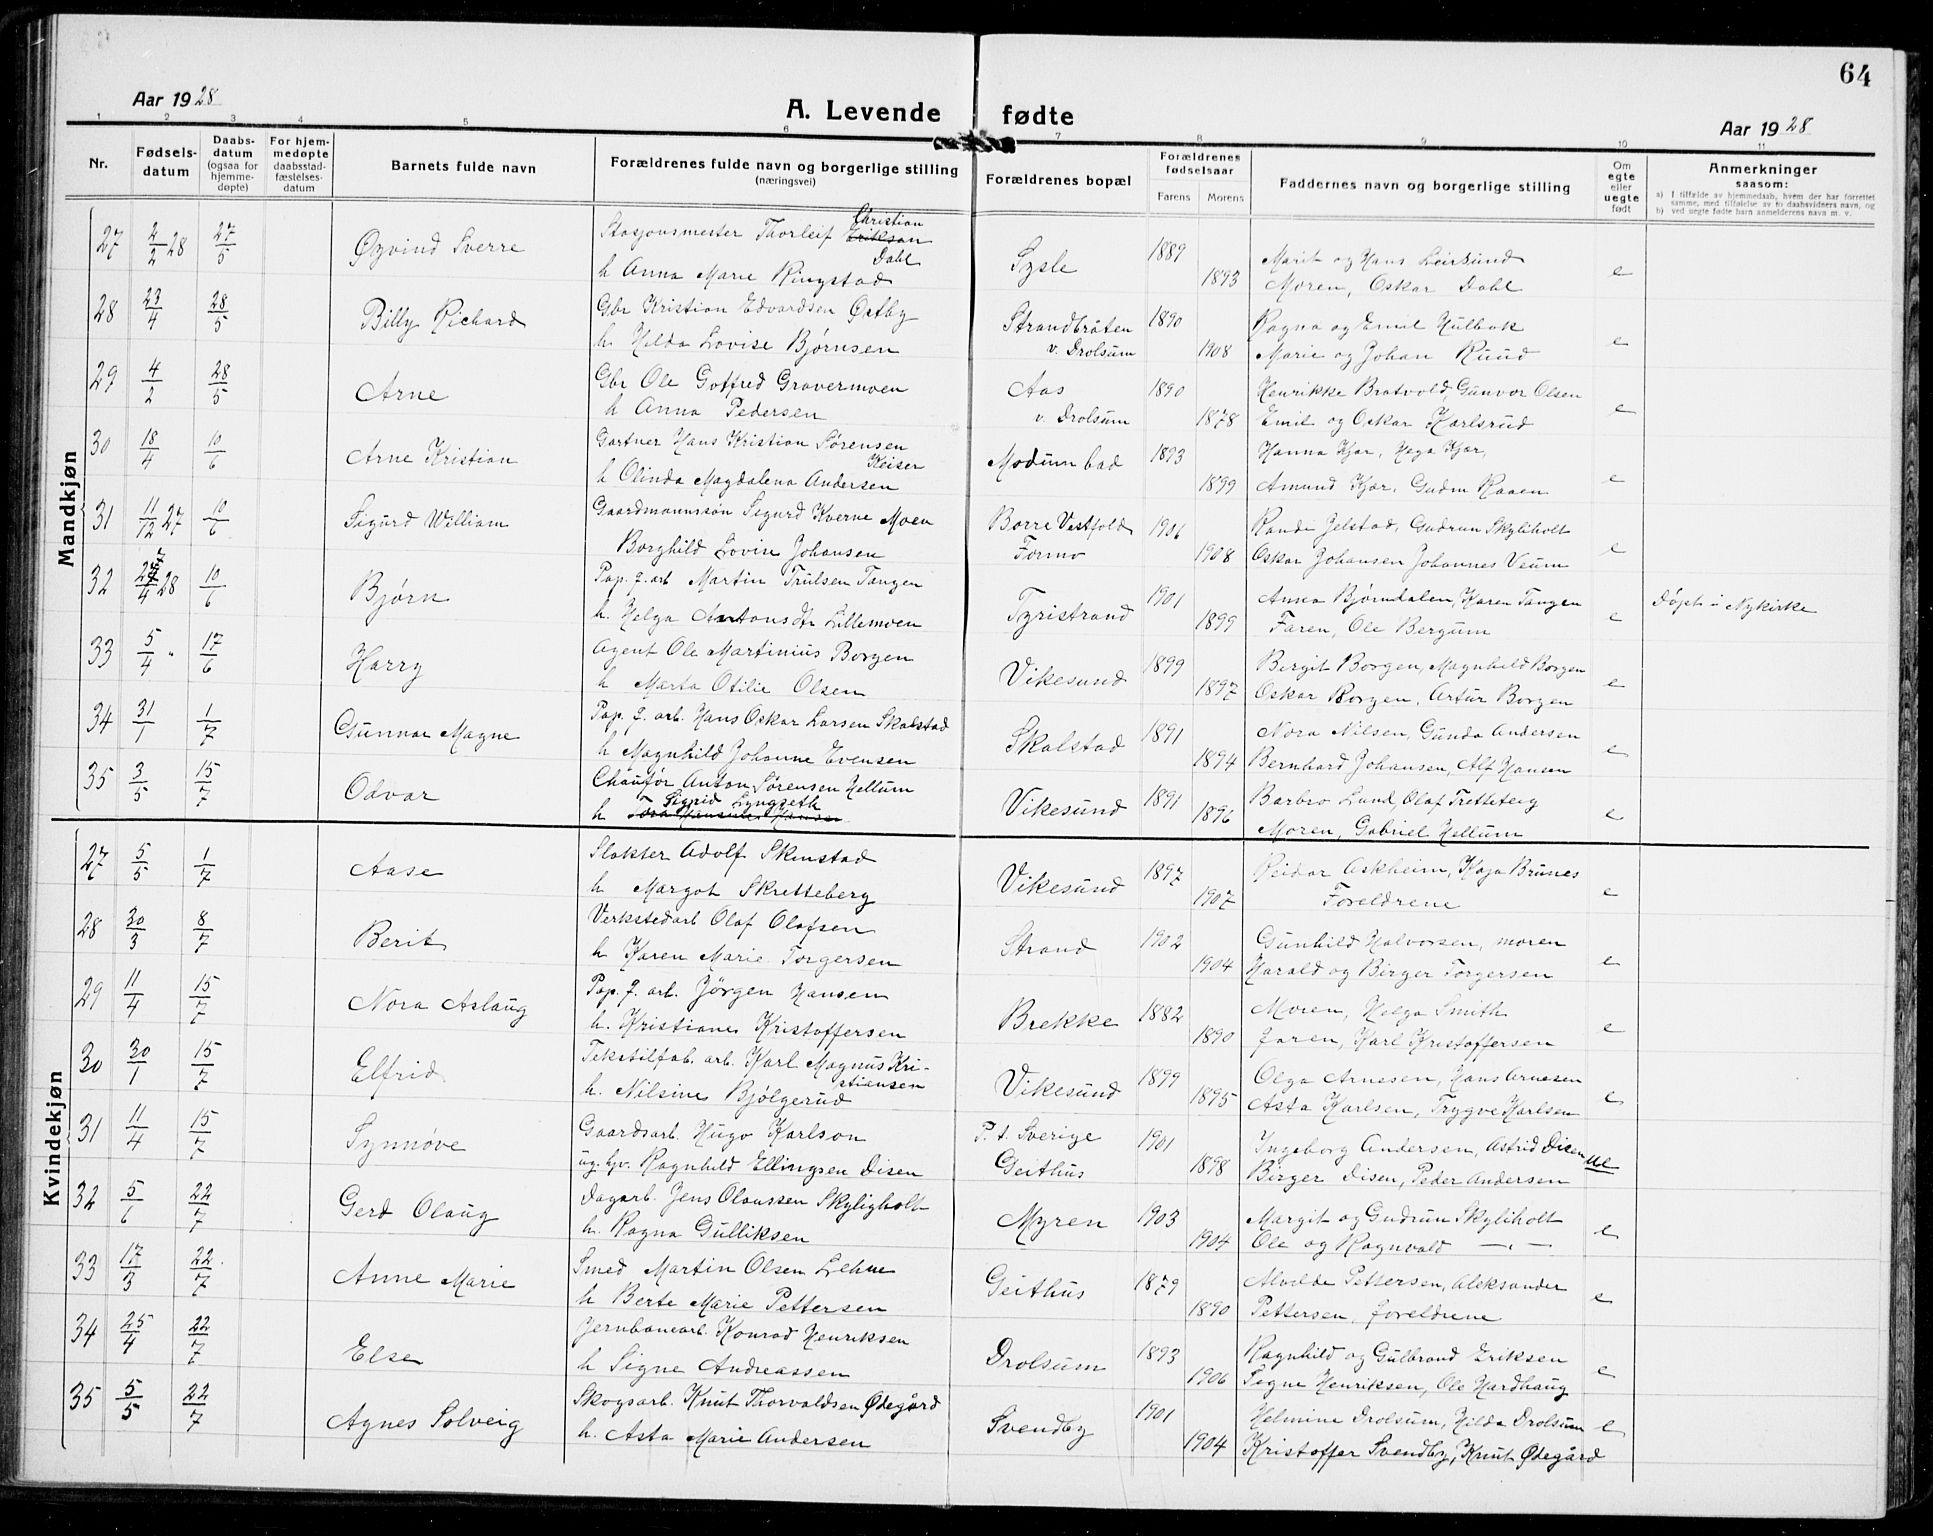 64
Aar 1928
A. Levende fødte
Aar 1928
1 2 3 4 5 6 7 8 9 10 11
Nr.
Fødsels-
datum
Daabs-
datum
(ogsaa for
hjemme-
døpte)
For hjem-
medøpte
daabsstad-
fæstelses-
datum
Barnets fulde navn
Forældrenes fulde navn og borgerlige stilling
(næringsvei)
Forældrenes bopæl
Forældrenes
fødselsaar
Farens Morens
Faddernes navn og borgerlige stilling
Om
egte
eller
uegte
født
Anmerkninger
saasom:
a) I tilfælde av hjemmedaab, hvem der har forrettet
samme, med tilføielse av to daabsvidners navn, og
b) ved uegte fødte barn anmelderens navn m. v.
Mandkjøn
27 2/2 28 27/5 Øyvind Sverre Stasjonsmester Thorleif Christian Erikson Dahl Sysle 1889 Marit og Hans Leirsund e
h Anna Marie Ringstad 1893 Moren, Oskar Dahl
28 23/4 28/5 Billy Richard Gbr Kristian Edvardsen Østby Strandbråten 1890 Ragna og Emil Hulbak e
h. Hilda Lovise Bjørnsen v. Drolsum 1908 Marie og Johan Ruud
29 4/2 28/5 Arne Gbr Ole Goffred Gravermoen Aas 1890 Henrikke Bratvold, Gunvor Olsen e
h Anna Pedersen v. Drolsum 1878 Emil og Oskar Karlsrud
30 18/4 10/6 Arne Kristian Gartner Hans Kristian Sørensen Keiser Modum bad 1893 Hanna Kjær, Hega Kjær, e
h Olinda Magdalena Andersen 1899 Amund Kjær, Gudm Raaen
31 11/12 27 10/6 Sigurd William Gaardmannssøn Sigurd Kverne Moen Borre Vestfold 1906 Randi Jelstad, Gudrun Skyliholt e
Borghild Lovise Johansen Formo 1908 Oskar Johansen Johannes Veum
32 27/4 28 10/6 Bjørn Pap. f. arb Martin Trulsen Tangen Tyristrand 1901 Anna Bjørndalen, Karen Tangen e Døpt i Nykirke
h. Helga Antonsdtr Lillemoen 1899 Faren, Ole Bergum
33 5/4 " 17/6 Harry Agent Ole Martinius Borgen Vikesund 1899 Bergit Borgen, Magnhild Borgen e
h Marta Otilie Olsen 1897 Oskar Borgen, Artur Borgen
34 31/1 1/7 Gunnar Magne Pap. f. arb. Hans Oskar Larsen Skalstad Skalstad 1891 Nora Nilsen, Gunda Andersen e
h Magnhild Johanne Evensen 1894 Bernhard Johansen, Alf Hansen
35 3/5 15/7 Odvar Chaufør Anton Sørensen Hellum Vikesund 1891 Barbro Lund, Olaf Tretteteig e
h Sigrid Lyngseth 1896 Moren, Gabriel Hellum
Kvindekjøn
27 5/5 1/7 Aase Slakter Adolf Skinstad Vikesund 1897 Reidar Askheim, Kaja Brunes e
h Margot Skretteberg 1907 Foreldrene
28 30/3 8/7 Berit Verkstedarb Olaf Olafsen Strand 1902 Gunhild Halvorsen, moren e
h Karen Marie Torgersen 1904 Harald og Birger Torgersen
29 11/4 15/7 Nora Aslaug Pap. f. arb. Jörgen Hansen Brekke 1882 Moren, Helga Smith e
h. Kristiane Kristoffersen 1890 Faren, Karl Kristoffersen
30 30/1 15/7 Elfrid Tekstilfab. arb. Karl Magnus Kristiansen Vikesund 1899 Olga Arnesen, Hans Arnesen e
h. Nilsine Bjølgerud 1895 Asta Karlsen, Trygve Karlsen
31 11/4 15/7 Synnøve Gaardsarb. Hugo Karlson P. t. Sverige 1901 Ingeborg Andersen, Astrid Disen ue
ug. kv. Ragnhild Ellingsen Disen Geithus 1898 Birger Disen, Peder Andersen
32 5/6 22/7 Gerd Olaug Dagarb. Jens Olaussen Skyligholt Myren 1903 Margit og Gudrun Skyliholt e
h. Ragna Gulliksen 1904 Ole og Ragnvald — " —
33 17/3 22/7 Anne Marie Smed Martin Olsen Lehne Geithus 1879 Alvilde Pettersen, Aleksander e
h Berte Marie Pettersen 1890 Pettersen, foreldrene
34 25/4 22/7 Else Jernbanearb. Konrad Henriksen Drolsum 1893 Ragnhild og Gulbrand Eriksen e
h Signe Andreassen 1906 Signe Henriksen, Ole Hardhaug
35 5/5 22/7 Agnes Solveig Skogsarb. Knut Thorvaldsen Ødegård Svendby 1901 Helmine Drolsum, Hilda Drolsum e
h. Asta Marie Andersen 1904 Kristoffer Svendby, Knut Ødegård